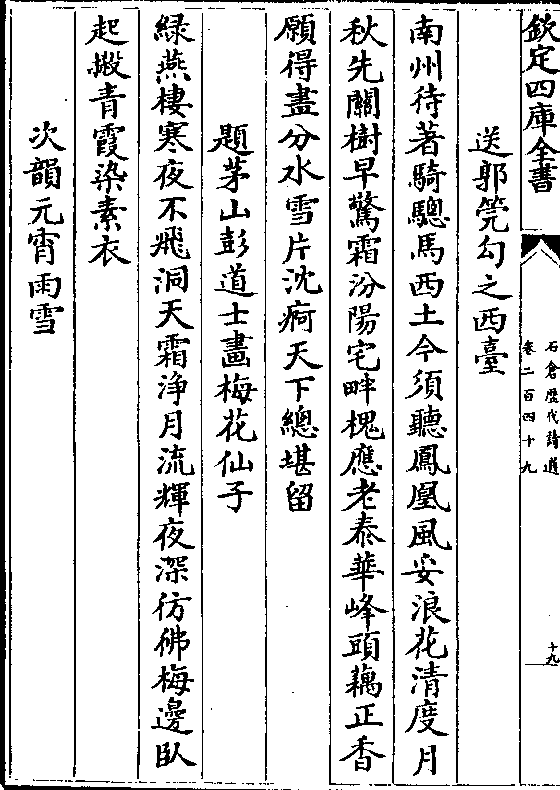 欽定四庫全書
石倉歷代詩選
卷二百四十九
十九
送郭筦勾之西臺
南州待著騎驄馬西土今須聽鳳凰風妥浪花清度月
秋先關樹早驚霜汾陽宅畔槐應老泰華峰頭藕正香
願得盡分水雪片沈疴天下總堪留
題茅山彭道士畫梅花仙子
緑燕棲寒夜不飛洞天霜淨月流輝夜深仿佛梅邊臥
起搬青霞染素衣
次韻元宵雨雪